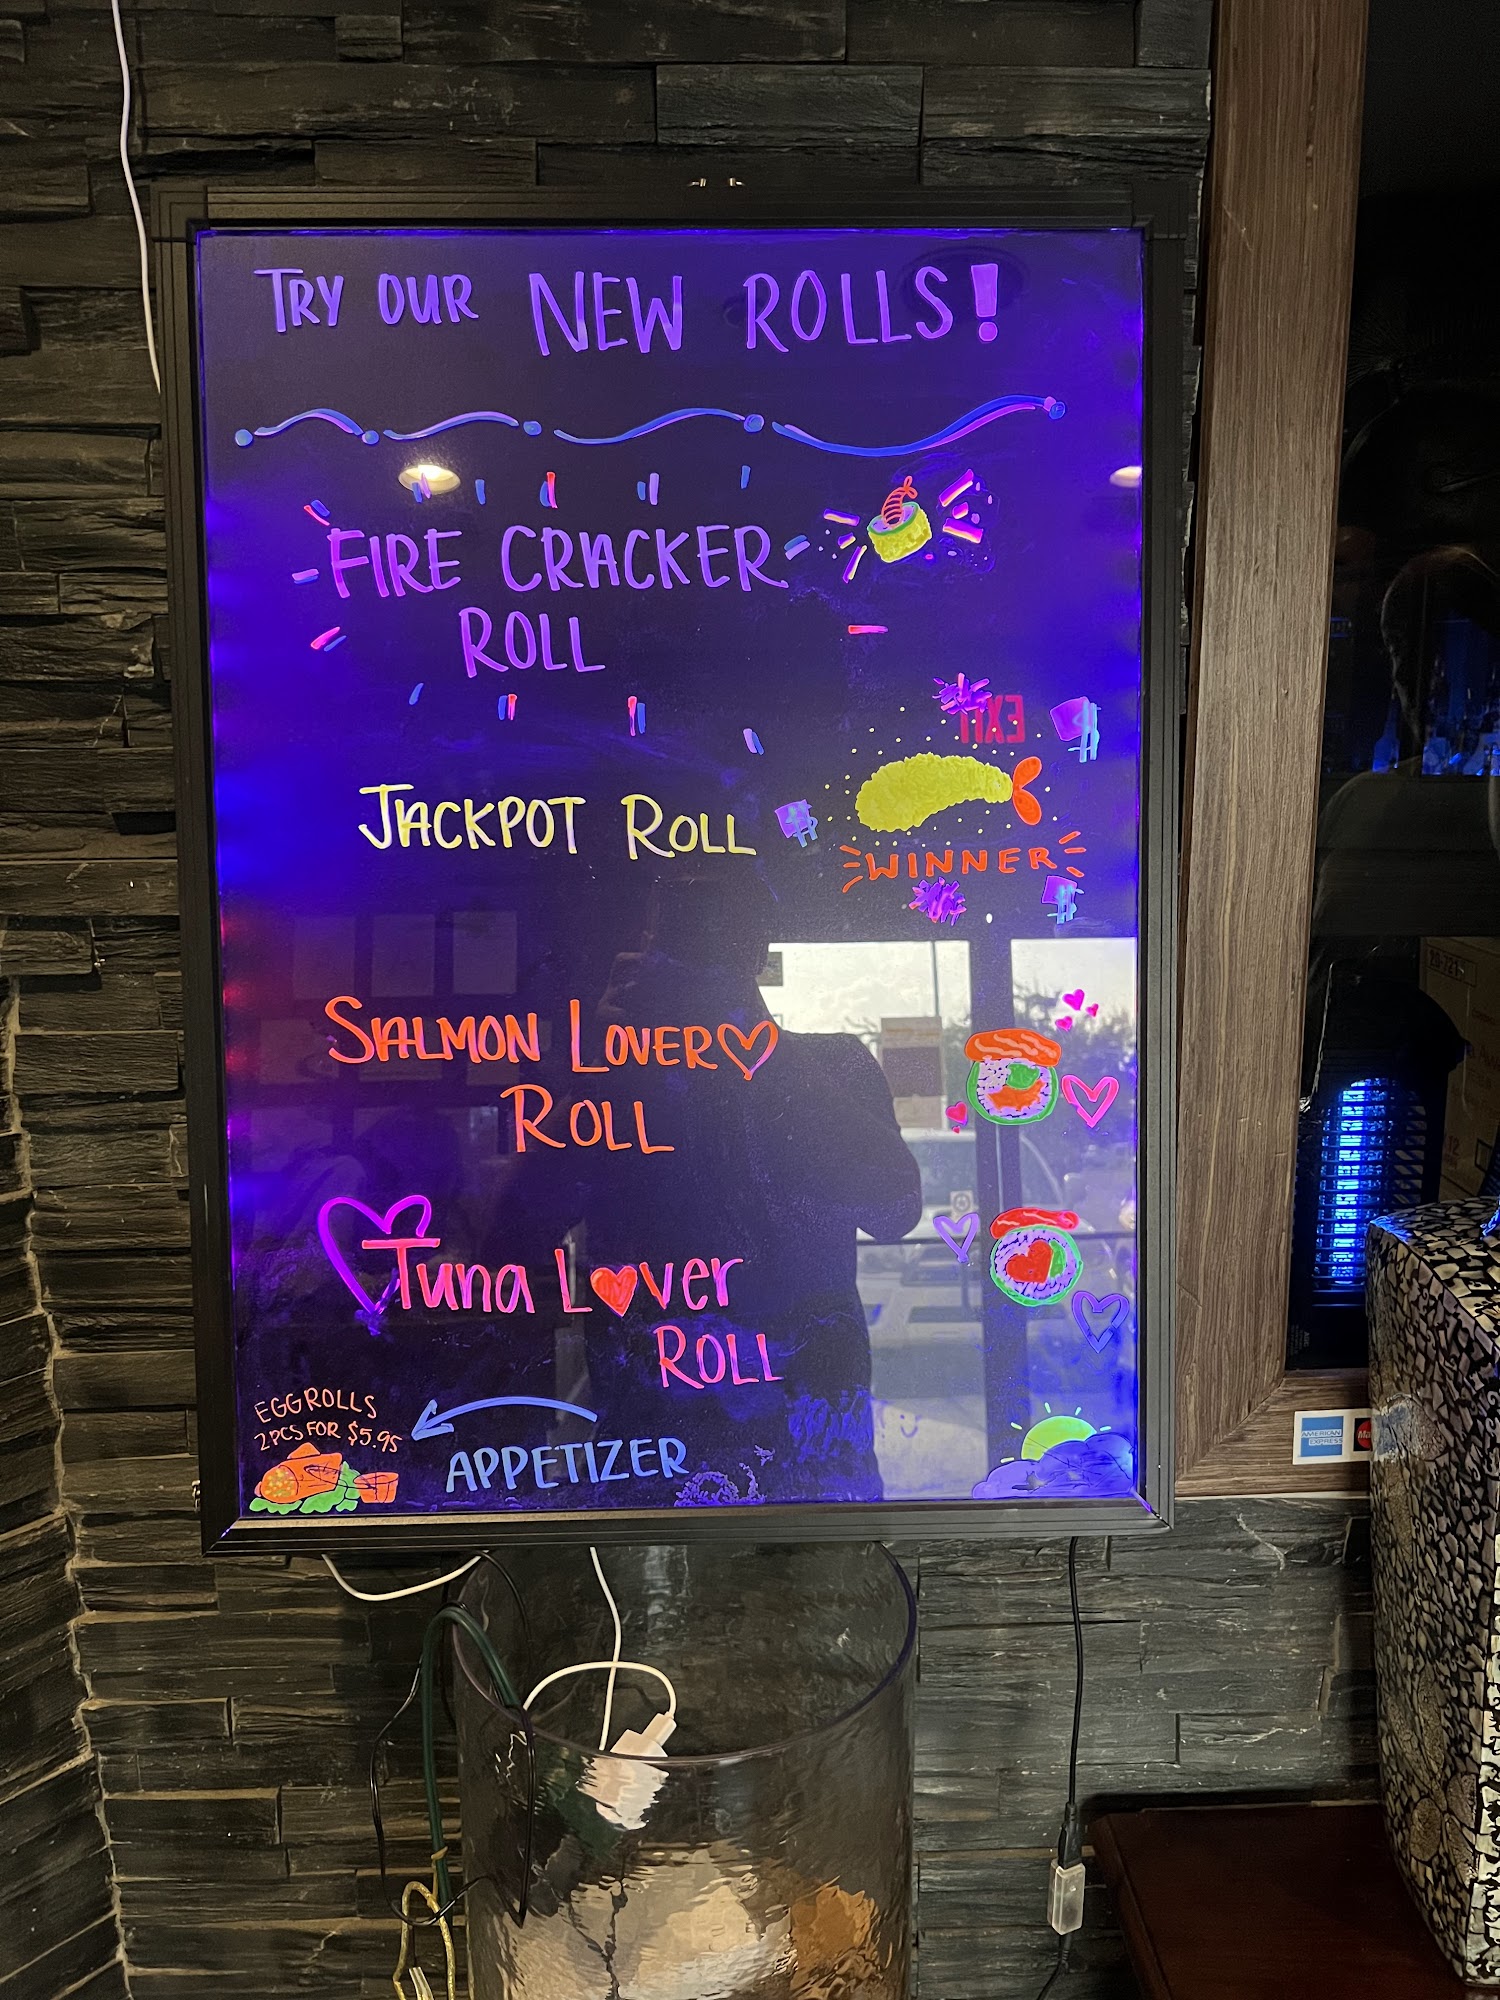 TRY OUR NEW ROLLS!
FIRE CRACKER
ROLL
EXIT
JACKPOT ROLL
WINNER
SALMON LOVER
ROLL
Tuna Lover
ROLL
EGGROLLS
2PCS FOR $5.95
APPETIZER
AMERICAN
EXPRESS